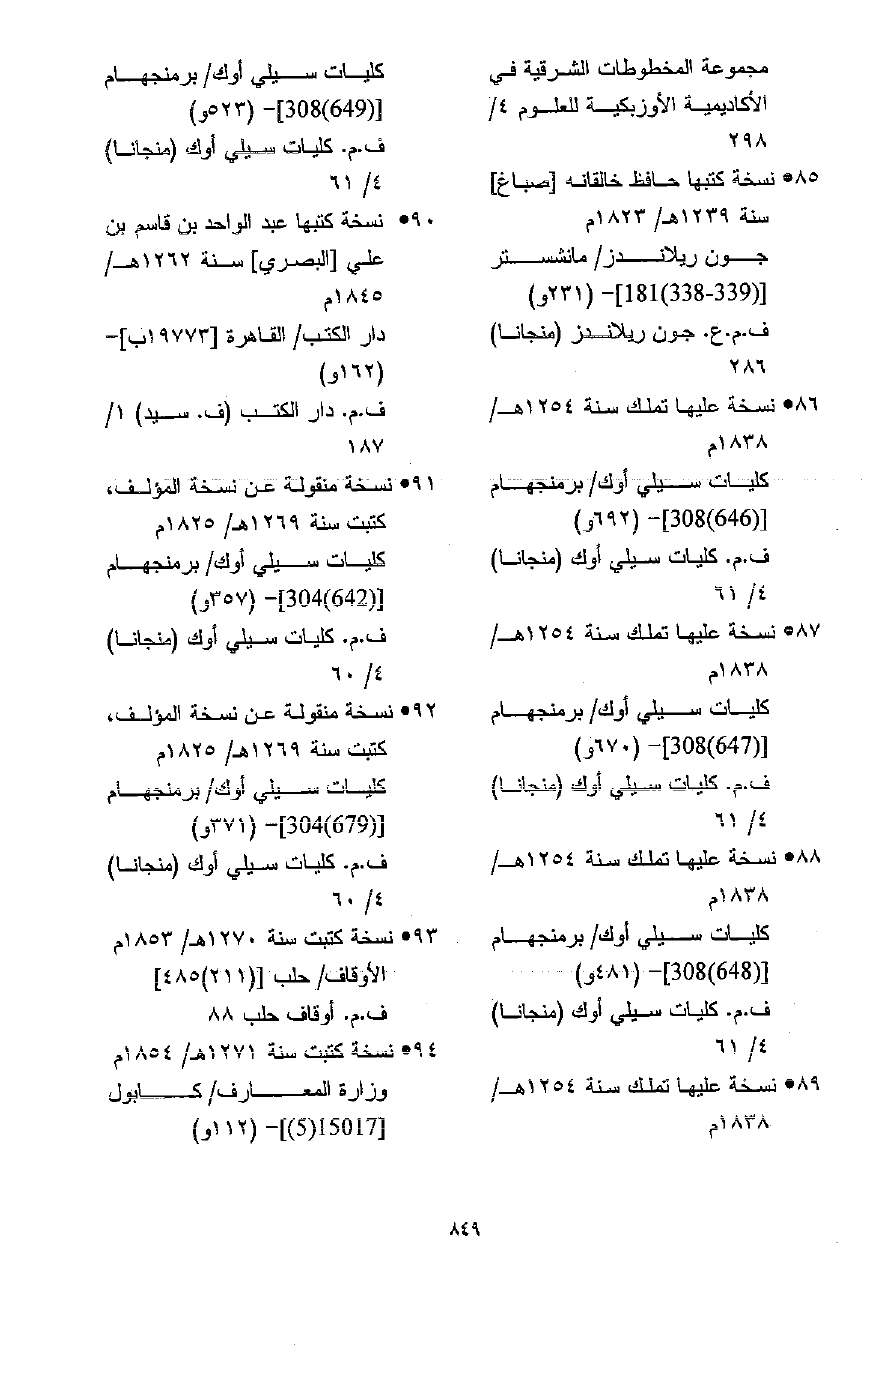 مجموعة المخطوطات الشرقية في
الأكاديمية الأوزبكية للعلوم ٤/
٢٩٨
٨٥• نسخة كتبها حافظ خالقانه [صباغ]
سنة ١٢٣٩هـ/ ١٨٢٣م
جون ريلاندز/ مانشستر
[181(338-339)]– (٢٣١و)
ف.م.ع. جون ريلاندز (منجانا)
٢٨٦
٨٦• نسخة عليها تملك سنة ١٢٥٤هـ/
١٨٣٨م
كليات سيلي أوك/ برمنجهام
[308(646)]– (٦٩٢و)
ف.م. كليات سيلي أوك (منجانا)
٤/ ٦١
٨٧• نسخة عليها تملك سنة ١٢٥٤هـ/
١٨٣٨م
كليات سيلي أوك/ برمنجهام
[308(647)]– (٦٧٠و)
ف.م. كليات سيلي أوك (منجانا)
٤/ ٦١
٨٨• نسخة عليها تملك سنة ١٢٥٤هـ/
١٨٣٨م
كليات سيلي أوك/ برمنجهام
[308(648)]– (٤٨١و)
ف.م. كليات سيلي أوك (منجانا)
٤/ ٦١
٨٩• نسخة عليها تملك سنة ١٢٥٤هـ/
١٨٣٨م
كليات سيلي أوك/ برمنجهام
[308(649)]– (٥٢٣و)
ف.م. كليات سيلي أوك (منجانا)
٤/ ٦١
٩٠• نسخة كتبها عبد الواحد بن قاسم بن
علي [البصري] سنة ١٢٦٢هـ/
١٨٤٥م
دار الكتب/ القاهرة [١٩٧٧٣ب]–
(١٦٢و)
ف.م. دار الكتب (ف. سيد) ١/
١٨٧
٩١• نسخة منقولة عن نسخة المؤلف،
كتبت سنة ١٢٦٩هـ/ ١٨٢٥م
كليات سيلي أوك/ برمنجهام
[304(642)]– (٣٥٧و)
ف.م. كليات سيلي أوك (منجانا)
٤/ ٦٠
٩٢• نسخة منقولة عن نسخة المؤلف،
كتبت سنة ١٢٦٩هـ/ ١٨٢٥م
كليات سيلي أوك/ برمنجهام
[304(679)]– (٣٧١و)
ف.م. كليات سيلي أوك (منجانا)
٤/ ٦٠
٩٣• نسخة كتبت سنة ١٢٧٠هـ/ ١٨٥٣م
الأوقاف/ حلب [(٢١١)٤٨٥]
ف.م. أوقاف حلب ٨٨
٩٤• نسخة كتبت سنة ١٢٧١هـ/ ١٨٥٤م
وزارة المعارف/ كابول
[15017(5)]– (١١٢و)
٨٤٩